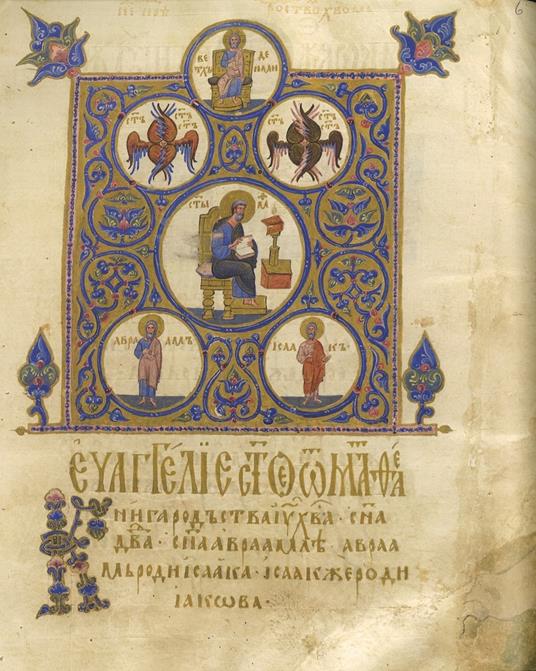 6
ВЕ ДЕ
СТЪ СТЪ СТЪ
СТЪ СТЪ СТЪ
АВРА АМЪ
ІСАА КЪ
ЕѴАГГЕЛІЕ СТОЕ Ѿ МАТѲЕА
КНИГА РОДЪСТВА ІУ ХВА · СНА
ДВА · СНА АВРААМЛѢ · АВРАА
МЬ РОДИ ІСААКА · ІСААК ЖЕ РОДИ
ІАКѠВА ·